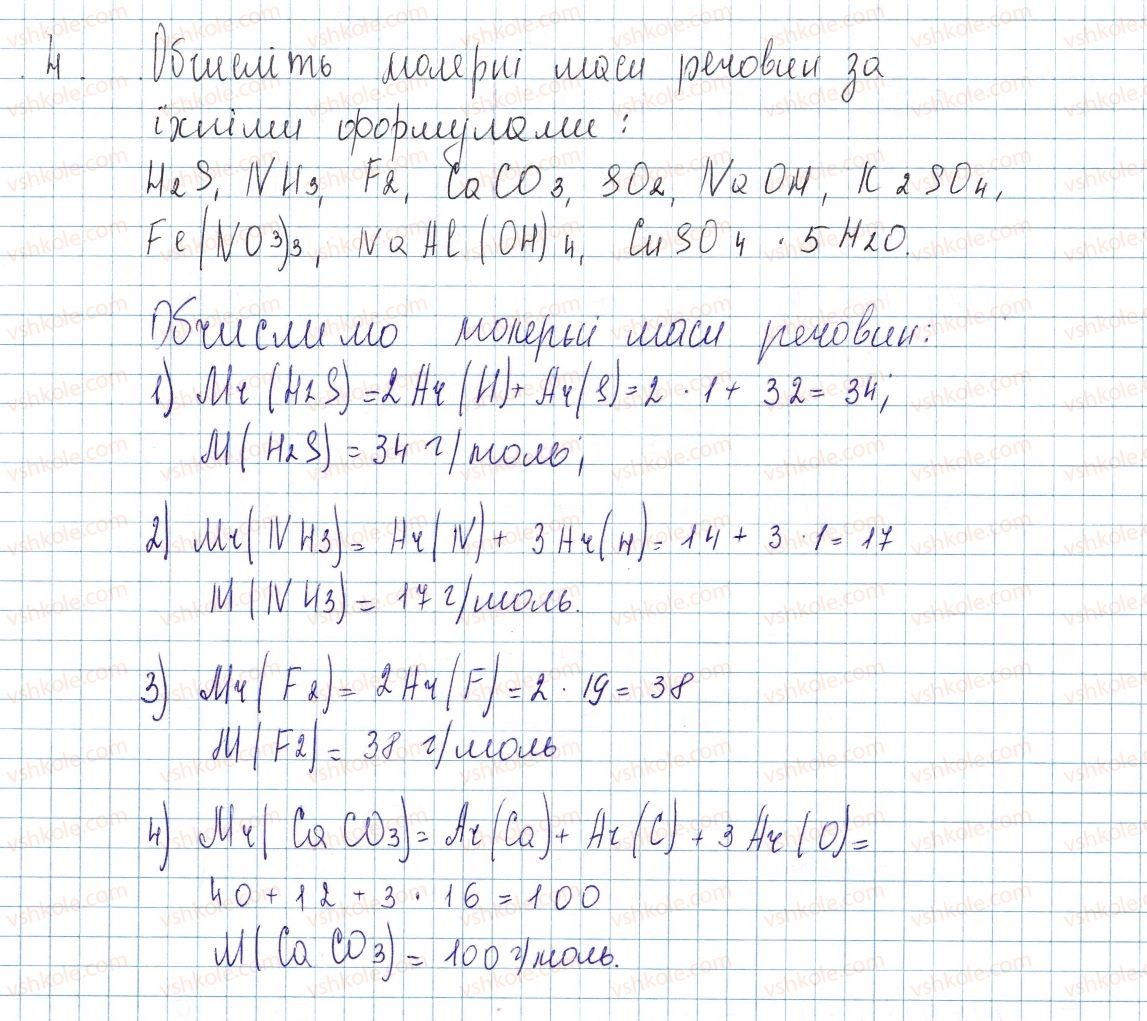 4. Обчисліть молярні маси речовин за
їхніми формулами:
H2S, NH3, F2, CaCO3, SO2, NaOH, K2SO4,
Fe(NO3)3, NaAl(OH)4, CuSO4 · 5H2O.
Обчислимо молярні маси речовин:
1) Mr(H2S)=2Ar(H)+Ar(S)=2 · 1 + 32 = 34;
M(H2S) = 34 г/моль;
2) Mr(NH3) = Ar(N) + 3Ar(H) = 14 + 3 · 1 = 17
M(NH3) = 17 г/моль.
3) Mr(F2) = 2Ar(F) = 2 · 19 = 38
M(F2) = 38 г/моль
4) Mr(CaCO3) = Ar(Ca) + Ar(C) + 3Ar(O) =
40 + 12 + 3 · 16 = 100
M(CaCO3) = 100 г/моль.